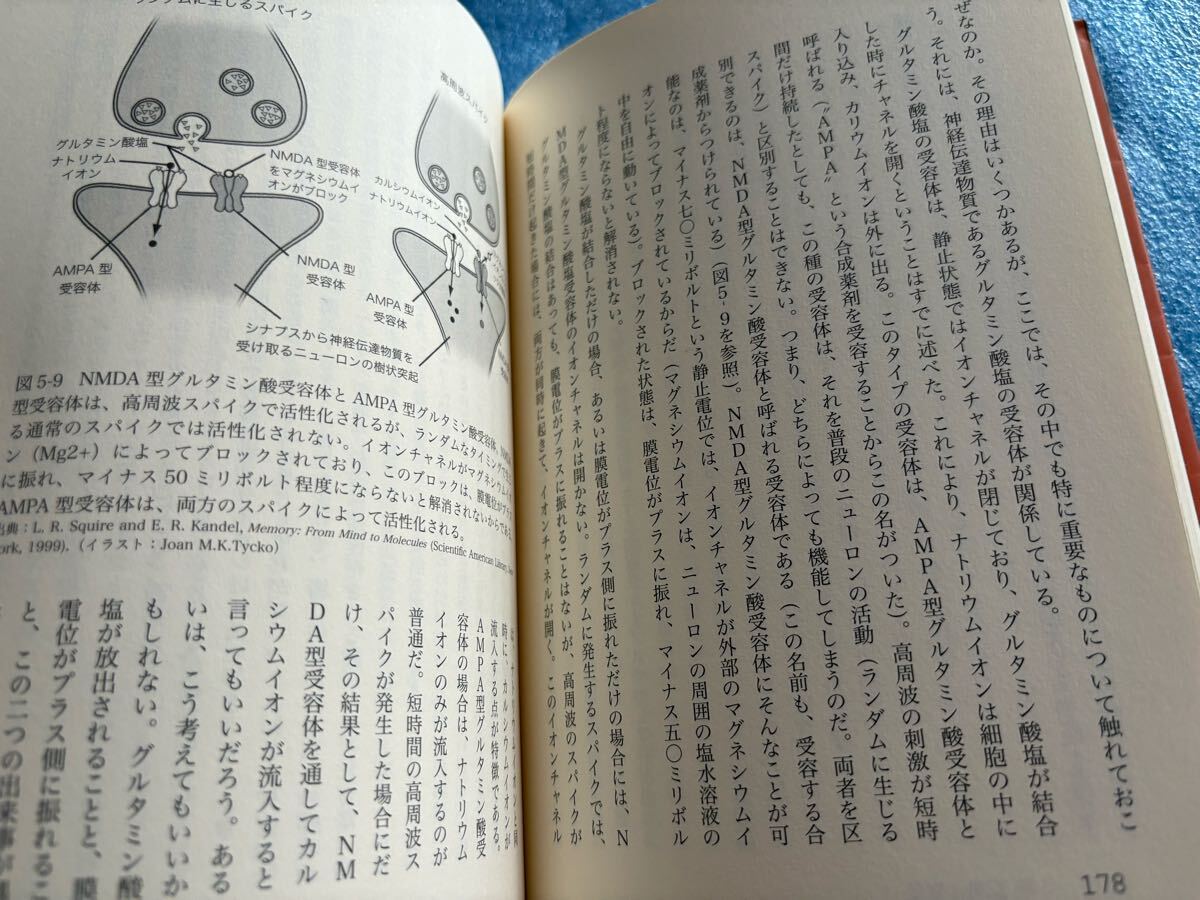 ぜなのか。その理由はいくつかあるが、ここでは、その中でも特に重要なものについて触れておこ
う。それには、神経伝達物質であるグルタミン酸塩の受容体が関係している。
グルタミン酸塩の受容体は、静止状態ではイオンチャネルが閉じており、グルタミン酸塩が結合
した時にチャネルを開くということはすでに述べた。これにより、ナトリウムイオンは細胞の中に
入り込み、カリウムイオンは外に出る。このタイプの受容体は、AMPA型グルタミン酸受容体と
呼ばれる（〝AMPA〟という合成薬剤を受容することからこの名がついた）。高周波の刺激が短時
間だけ持続したとしても、この種の受容体は、それを普段のニューロンの活動（ランダムに生じる
スパイク）と区別することはできない。つまり、どちらによっても機能してしまうのだ。両者を区
別できるのは、NMDA型グルタミン酸受容体と呼ばれる受容体である（この名前も、受容する合
成薬剤からつけられている）（図5-9を参照）。NMDA型グルタミン酸受容体にそんなことが可
能なのは、マイナス七〇ミリボルトという静止電位では、イオンチャネルが外部のマグネシウムイ
オンによってブロックされているからだ（マグネシウムイオンは、ニューロンの周囲の塩水溶液の
中を自由に動いている）。ブロックされた状態は、膜電位がプラスに振れ、マイナス五〇ミリボル
ト程度にならないと解消されない。
グルタミン酸塩が結合しただけの場合、あるいは膜電位がプラス側に振れただけの場合には、N
MDA型グルタミン酸塩受容体のイオンチャネルは開かない。ランダムに発生するスパイクでは、
グルタミン酸塩の結合はあっても、膜電位がプラスに振れることはないが、高周波のスパイクが
短時間だけ起きた場合には、両方が同時に起きて、イオンチャネルが開く。このイオンチャネル
178
ランダムに生じるスパイク
グルタミン酸塩
ナトリウム
イオン
NMDA 型受容体
をマグネシウムイ
オンがブロック
AMPA 型
受容体
NMDA 型
受容体
シナプスから神経伝達物質を
受け取るニューロンの樹状突起
高周波スパイク
カルシウムイオン
ナトリウムイオン
AMPA 型
受容体
図 5-9 NMDA 型グルタミン酸受容体と AMPA 型グルタミン酸受容体
型受容体は、高周波スパイクで活性化されるが、ランダムなタイミングで生じ
る通常のスパイクでは活性化されない。イオンチャネルがマグネシウムイオ
ン（Mg2+）によってブロックされており、このブロックは、膜電位がプラス
に振れ、マイナス 50 ミリボルト程度にならないと解消されないからである
AMPA 型受容体は、両方のスパイクによって活性化される。
出典：L. R. Squire and E. R. Kandel, Memory: From Mind to Molecules (Scientific American Library, New
York, 1999).（イラスト：Joan M.K.Tycko）
時に、カルシウムイオンが
流入する点が特徴である。
AMPA型グルタミン酸受
容体の場合は、ナトリウム
イオンのみが流入するのが
普通だ。短時間の高周波ス
パイクが発生した場合にだ
け、その結果として、NM
DA型受容体を通してカル
シウムイオンが流入すると
言ってもいいだろう。ある
いは、こう考えてもいいか
もしれない。グルタミン酸
塩が放出されることと、膜
電位がプラス側に振れるこ
と、この二つの出来事が